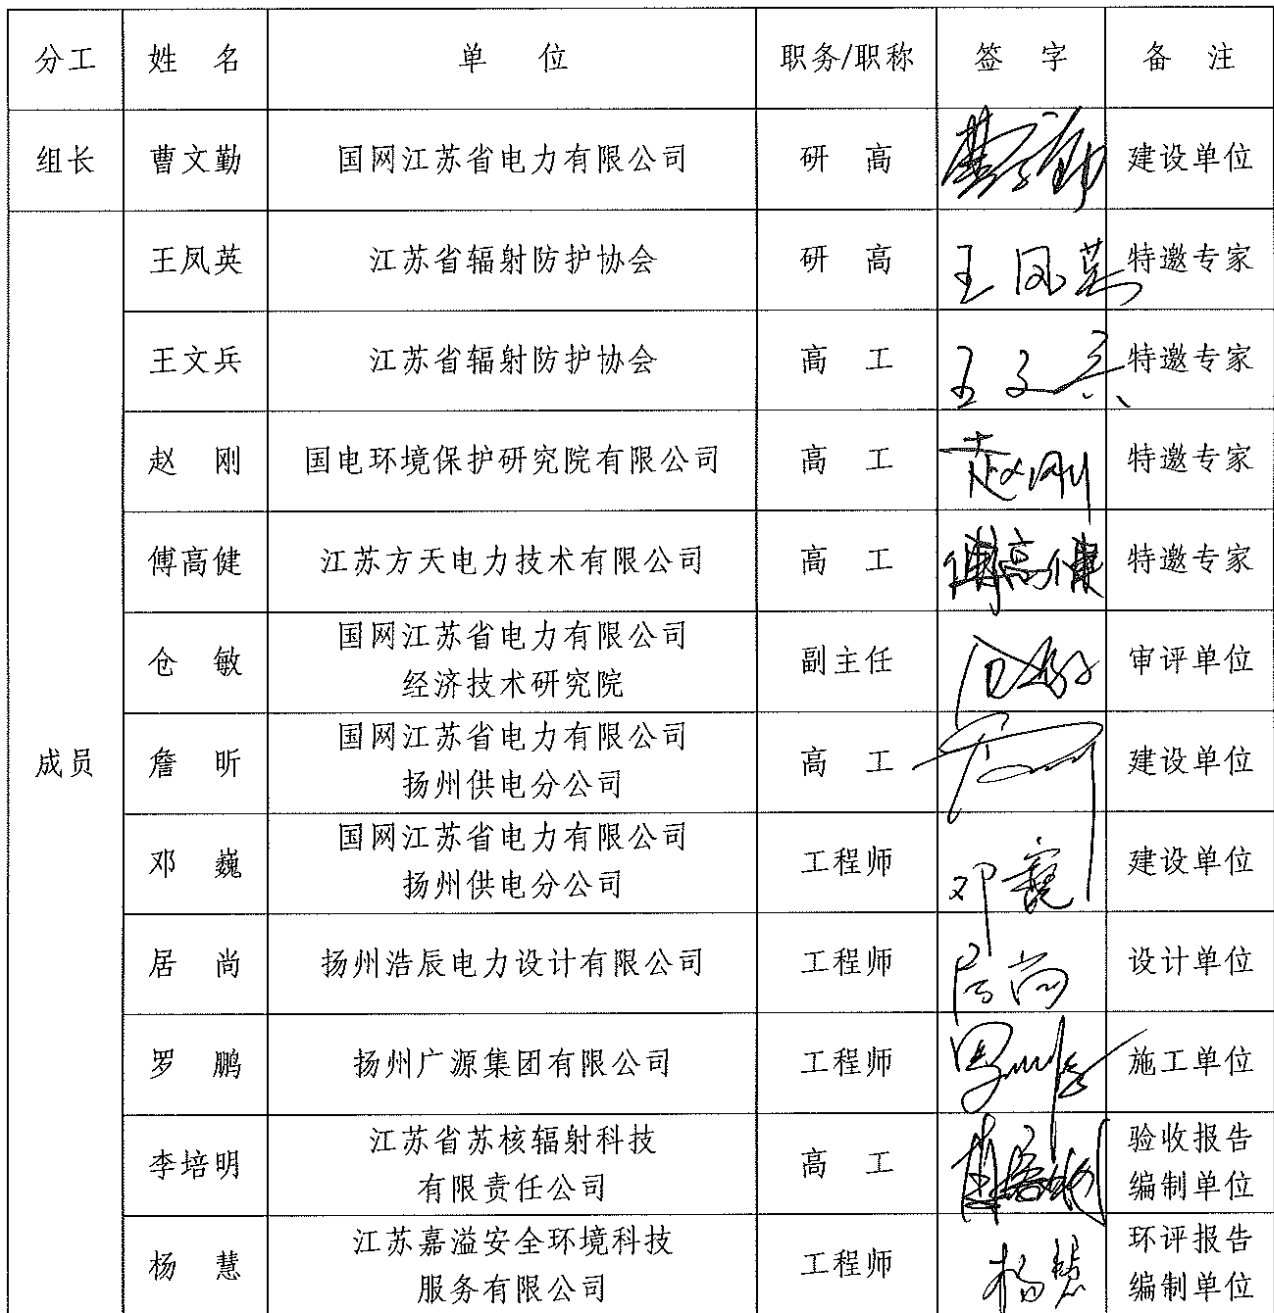 分工 姓名 单位 职务/职称 签字 备注
组长 曹文勤 国网江苏省电力有限公司 研高 曹文勤 建设单位
王凤英 江苏省辐射防护协会 研高 王凤英 特邀专家
王文兵 江苏省辐射防护协会 高工 王文兵 特邀专家
赵刚 国电环境保护研究院有限公司 高工 赵刚 特邀专家
傅高健 江苏方天电力技术有限公司 高工 傅高健 特邀专家
仓敏 国网江苏省电力有限公司
经济技术研究院 副主任 仓敏 审评单位
成员 詹昕 国网江苏省电力有限公司
扬州供电分公司 高工 建设单位
邓巍 国网江苏省电力有限公司
扬州供电分公司 工程师 邓巍 建设单位
居尚 扬州浩辰电力设计有限公司 工程师 居尚 设计单位
罗鹏 扬州广源集团有限公司 工程师 施工单位
李培明 江苏省苏核辐射科技
有限责任公司 高工 验收报告
编制单位
杨慧 江苏嘉溢安全环境科技
服务有限公司 工程师 杨慧 环评报告
编制单位